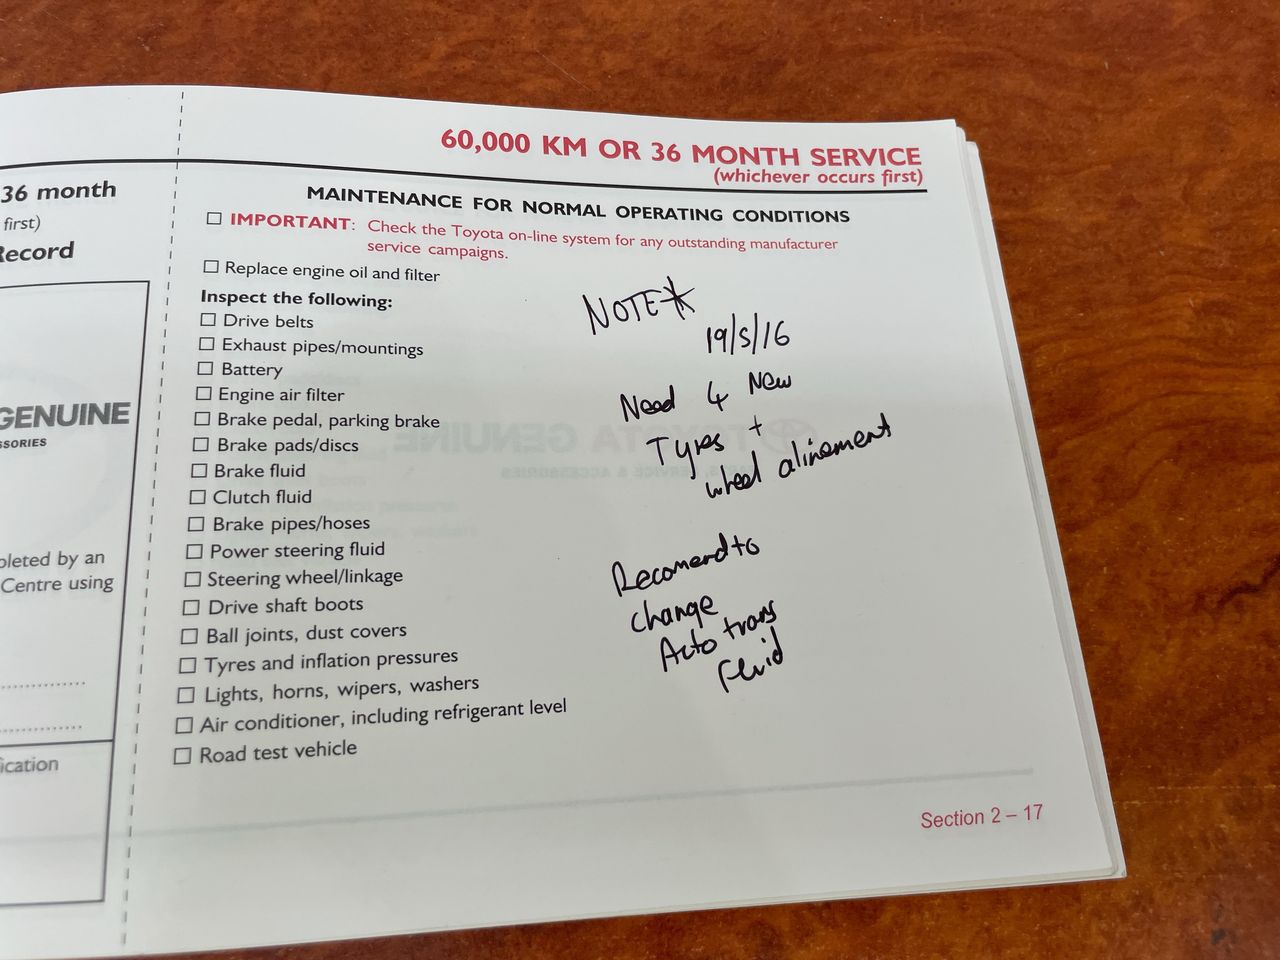 36 month
first)
Record
GENUINE
SSORIES
pleted by an
Centre using
ication
60,000 KM OR 36 MONTH SERVICE
(whichever occurs first)
MAINTENANCE FOR NORMAL OPERATING CONDITIONS
☐ IMPORTANT: Check the Toyota on-line system for any outstanding manufacturer
service campaigns.
☐ Replace engine oil and filter
Inspect the following:
☐ Drive belts
☐ Exhaust pipes/mountings
☐ Battery
☐ Engine air filter
☐ Brake pedal, parking brake
☐ Brake pads/discs
☐ Brake fluid
☐ Clutch fluid
☐ Brake pipes/hoses
☐ Power steering fluid
☐ Steering wheel/linkage
☐ Drive shaft boots
☐ Ball joints, dust covers
☐ Tyres and inflation pressures
☐ Lights, horns, wipers, washers
☐ Air conditioner, including refrigerant level
☐ Road test vehicle
NOTE*
19/5/16
Need 4 New
Tyres +
wheel alinement
Recomend to
change
Auto trans
Fluid
Section 2 – 17